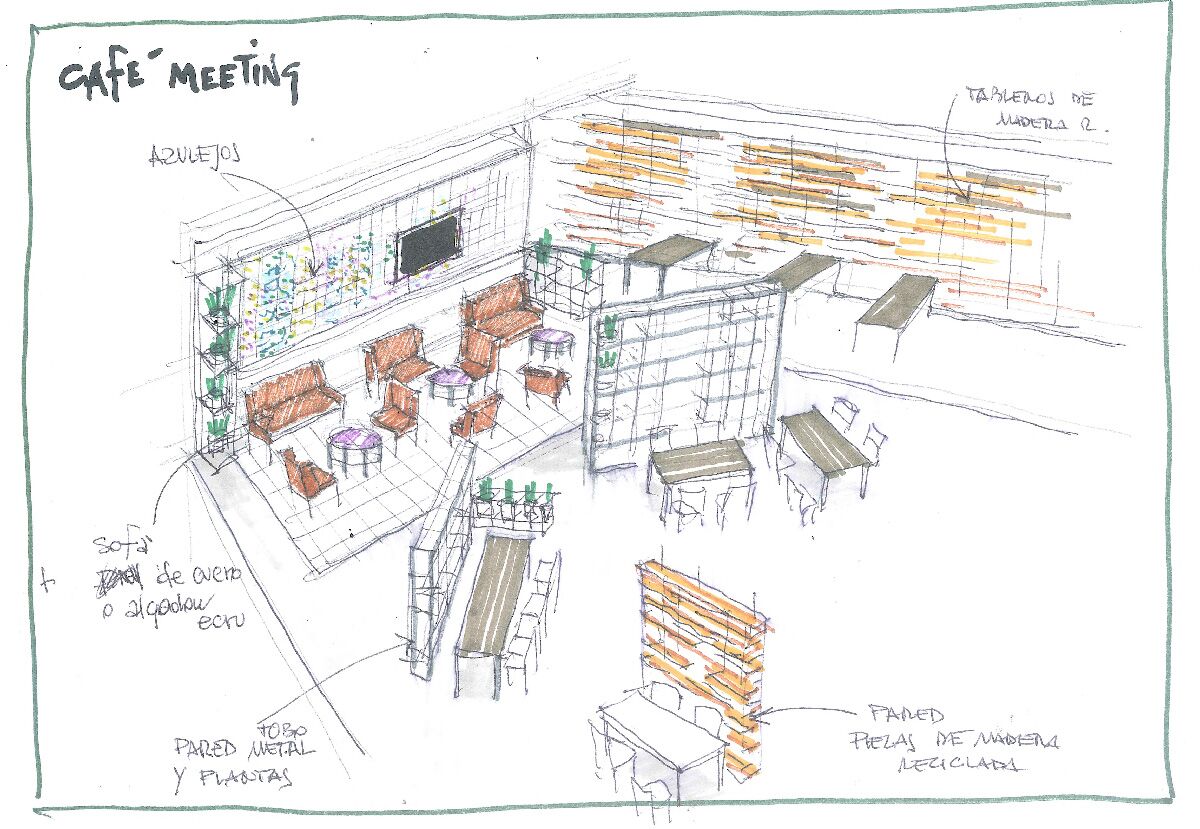 CAFÉ MEETING
AZULEJOS
TABLEROS DE
MADERA R.
sofá
de cuero
o algodon
ecru
PARED METAL
Y PLANTAS
PARED
PIEZAS DE MADERA
RECICLADA